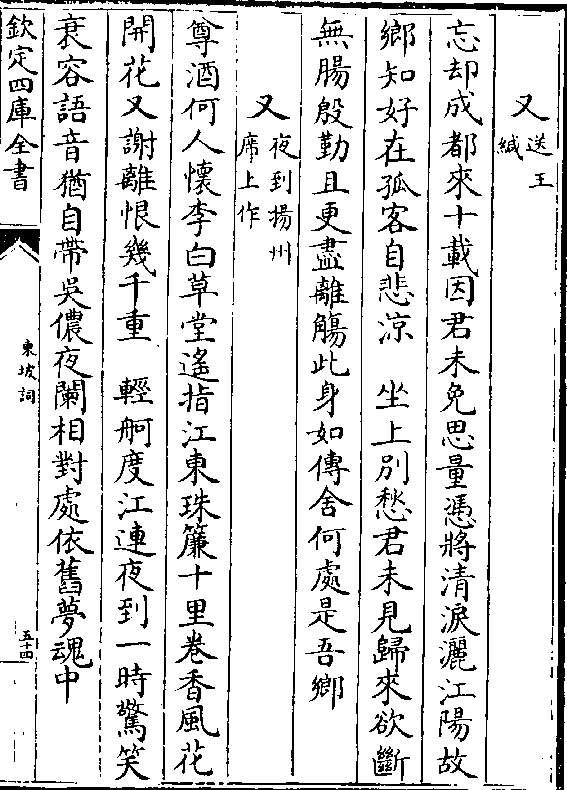 又送王緘
忘却成都來十載因君未免思量憑將清淚灑江陽故
鄉知好在孤客自悲涼　坐上別愁君未見歸來欲斷
無腸殷勤且更盡離觴此身如傳舍何處是吾鄉
又夜到揚州席上作
尊酒何人懷李白草堂遙指江東珠簾十里卷香風花
開花又謝離恨幾千重　輕舸度江連夜到一時驚笑
衰容語音猶自帶吳儂夜闌相對處依舊夢魂中
欽定四庫全書
東坡詞
五十四